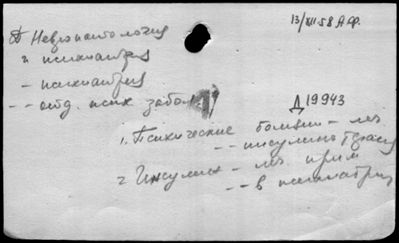 13/XII 58 А.Ф.
Невропатология
и психиатрия
- психиатрия
- - отд. псих забол.
Д 19943
1. Психические болезни - леч
- - инсулинотерапия
2 Инсулин - леч. прим
- - в психиатрии